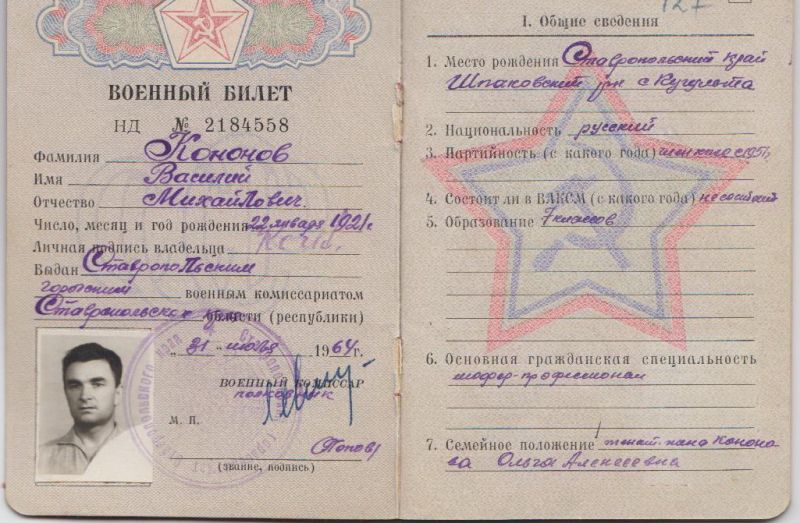 ВОЕННЫЙ БИЛЕТ
НД № 2184558
Фамилия Кононов
Имя Василий
Отчество Михайлович.
Число, месяц и год рождения 22 января 1921г
Личная подпись владельца
Выдан Ставропольским
городским военным комиссариатом
Ставропольского края области (республики)
„31" июля 1964г.
ВОЕННЫЙ КОМИССАР
полковник
М. П.
(Попов)
(звание, подпись)
127
I. Общие сведения
1. Место рождения Ставропольский край
Шпаковский р-н с Кугульта
2. Национальность русский
3. Партийность (с какого года) член кпсс с 1957г
4. Состоит ли в ВЛКСМ (с какого года) не состоит
5. Образование 7 классов
6. Основная гражданская специальность
шофер-профессионал
7. Семейное положение женат. жена Конон-
ва Ольга Алексеевна